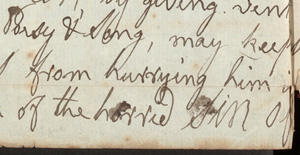 by giving vent
& Song, may keep
from hurrying him i
of the horred SIN of